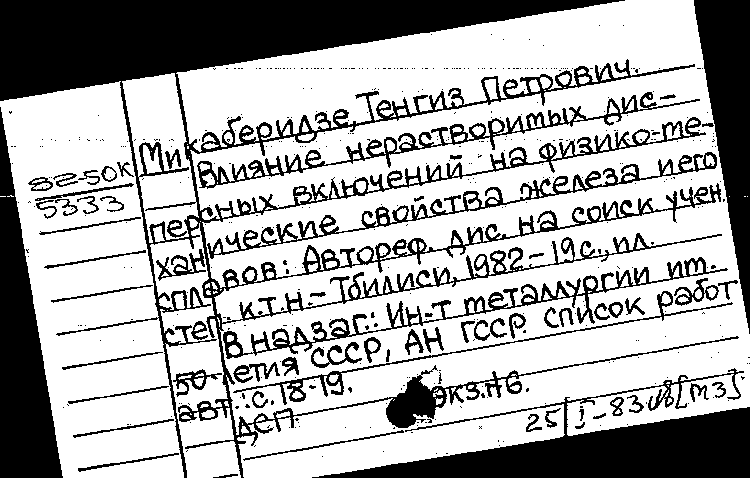 82-50К
5333
Микаберидзе, Тенгиз Петрович.
Влияние нерастворимых дис-
персных включений на физико-ме-
ханические свойства железа и его
сплавов: Автореф. дис. на соиск. учен
степ. к.т.н. - Тбилиси, 1982. - 19 с., ил.
В надзаг.: Ин-т металлургии им.
50-летия СССР, АН ГССР. Список работ
авт.: с. 18-19.
ДСП Экз. № 6.
25 I-83 [МЗ]